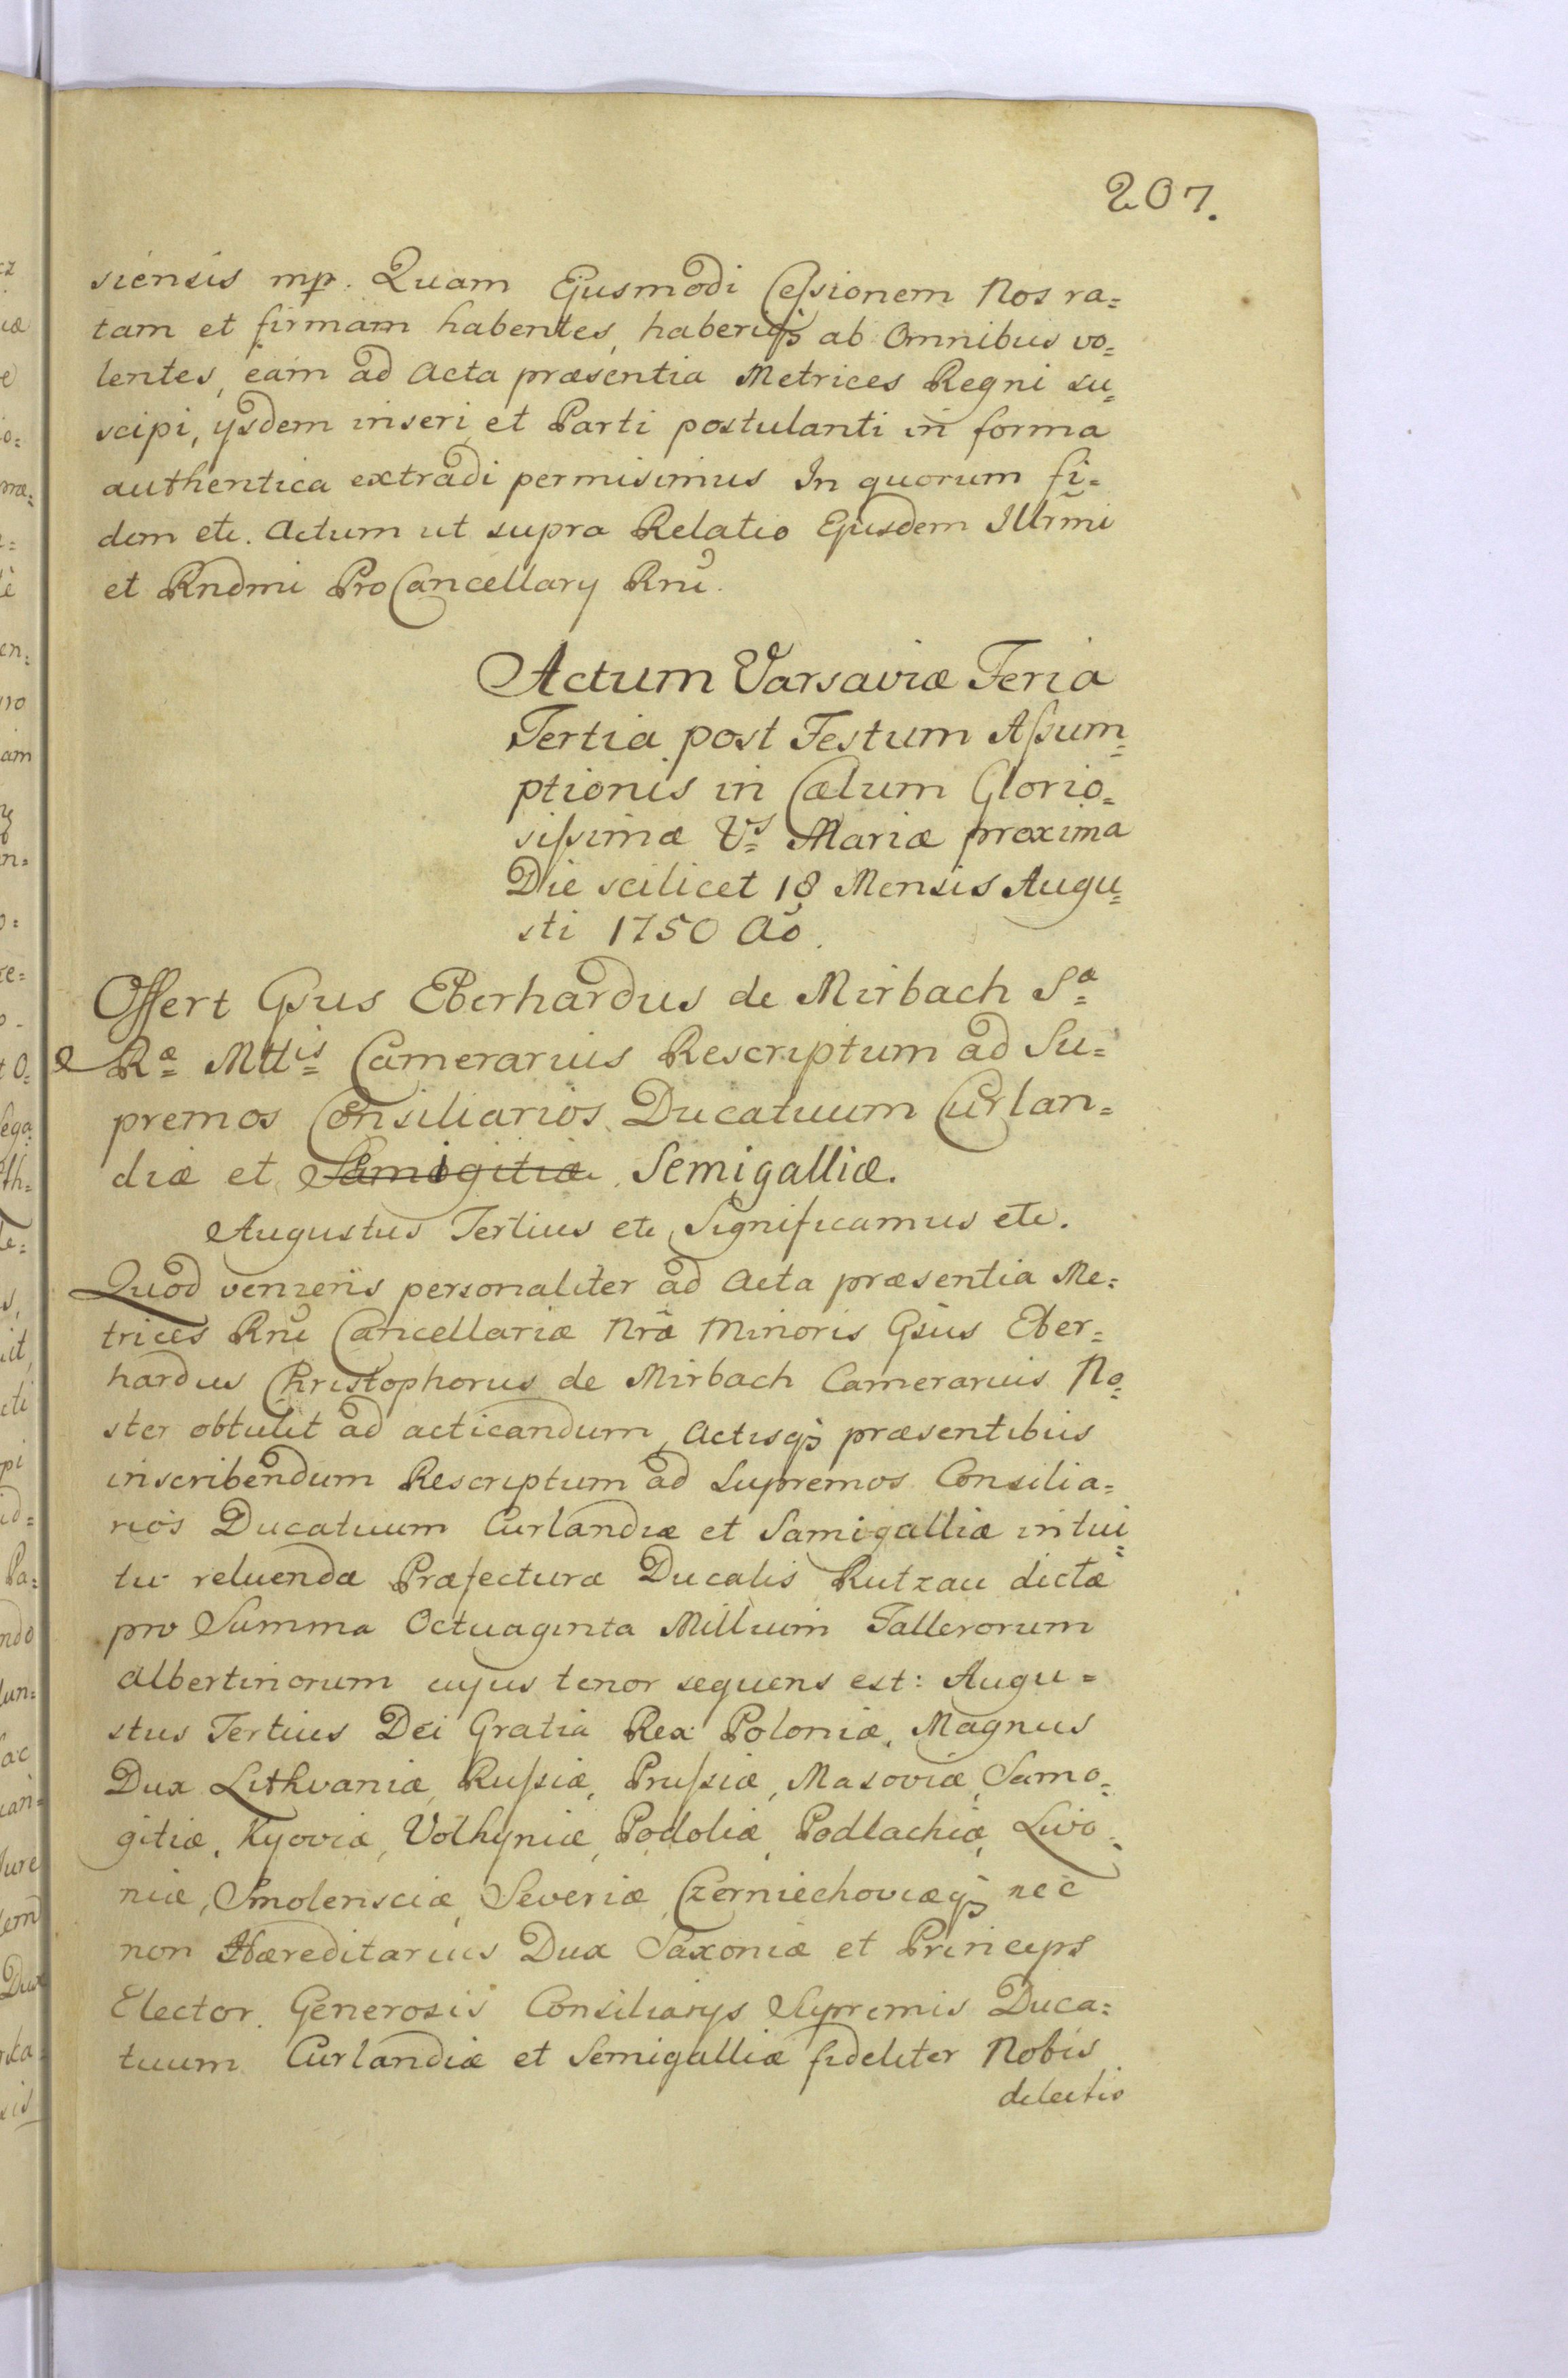 207.
siensis mp. Quam Ejusmodi Cessionem Nos ra=
tam et firmam habentes, haberiq3 ab Omnibus vo=
lentes, eam ad Acta præsentia Metrices Regni su=
scipi, ijsdem inseri, et Parti postulanti in forma
authentica extradi permisimus In quorum fi=
dem etc. Actum ut supra Relatio Ejusdem Illrmi
et Rndmi ProCancellary Rni.
Actum Varsaviæ Feria
Tertia post Festum Assum=
ptionis in Cælum Glorio=
sissimæ Vs Mariæ proxima
Die scilicet 18 Mensis Augu=
sti 1750 Ao.
Offert Gsus Eberhardus de Mirbach Sæ
Ræ Mttis Camerarius Rescriptum ad Su=
premos Consiliarios Ducatuum Curlan=
diæ et Samogitiæ Semigalliæ.
Augustus Tertius etc Significamus etc.
Quod veniens personaliter ad Acta præsentia Me=
trices Rni Cancellariæ Nræ Minoris Gsus Eber=
hardus Christophorus de Mirbach Camerarius No=
ster obtulit ad acticandum, Actisq3 præsentibus
inscribendum Rescriptum ad Supremos Consilia=
rios Ducatuum Curlandiæ et Samigalliæ intui=
tu reluendæ Præfecturæ Ducalis Rutzau dictæ
pro Summa Octuaginta Millium Tallerorum
Albertinorum cujus tenor sequens est: Augu=
stus Tertius Dei Gratia Rex Poloniæ, Magnus
Dux Lithvaniæ, Russiæ, Prussiæ, Masoviæ, Samo=
gitiæ, Kyoviæ, Volhyniæ, Podoliæ, Podlachiæ, Livo=
niæ, Smolensciæ, Severiæ, Czerniechoviæq3 nec
non Hæreditarius Dux Saxoniæ et Princeps
Elector. Generosis Consiliarys Supremis Duca=
tuum Curlandiæ et Semigalliæ fideliter Nobis
delectis